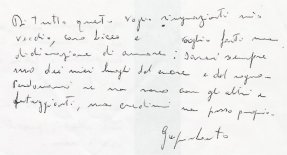 Di tutto questo voglio ringraziarti mio
vecchio, caro liceo e voglio farti una
dichiarazione di amore: sarai sempre
uno dei miei luoghi del cuore e del sogno.
Perdonami se non verrò con gli altri a
festeggiarti, ma credimi ne posso proprio.